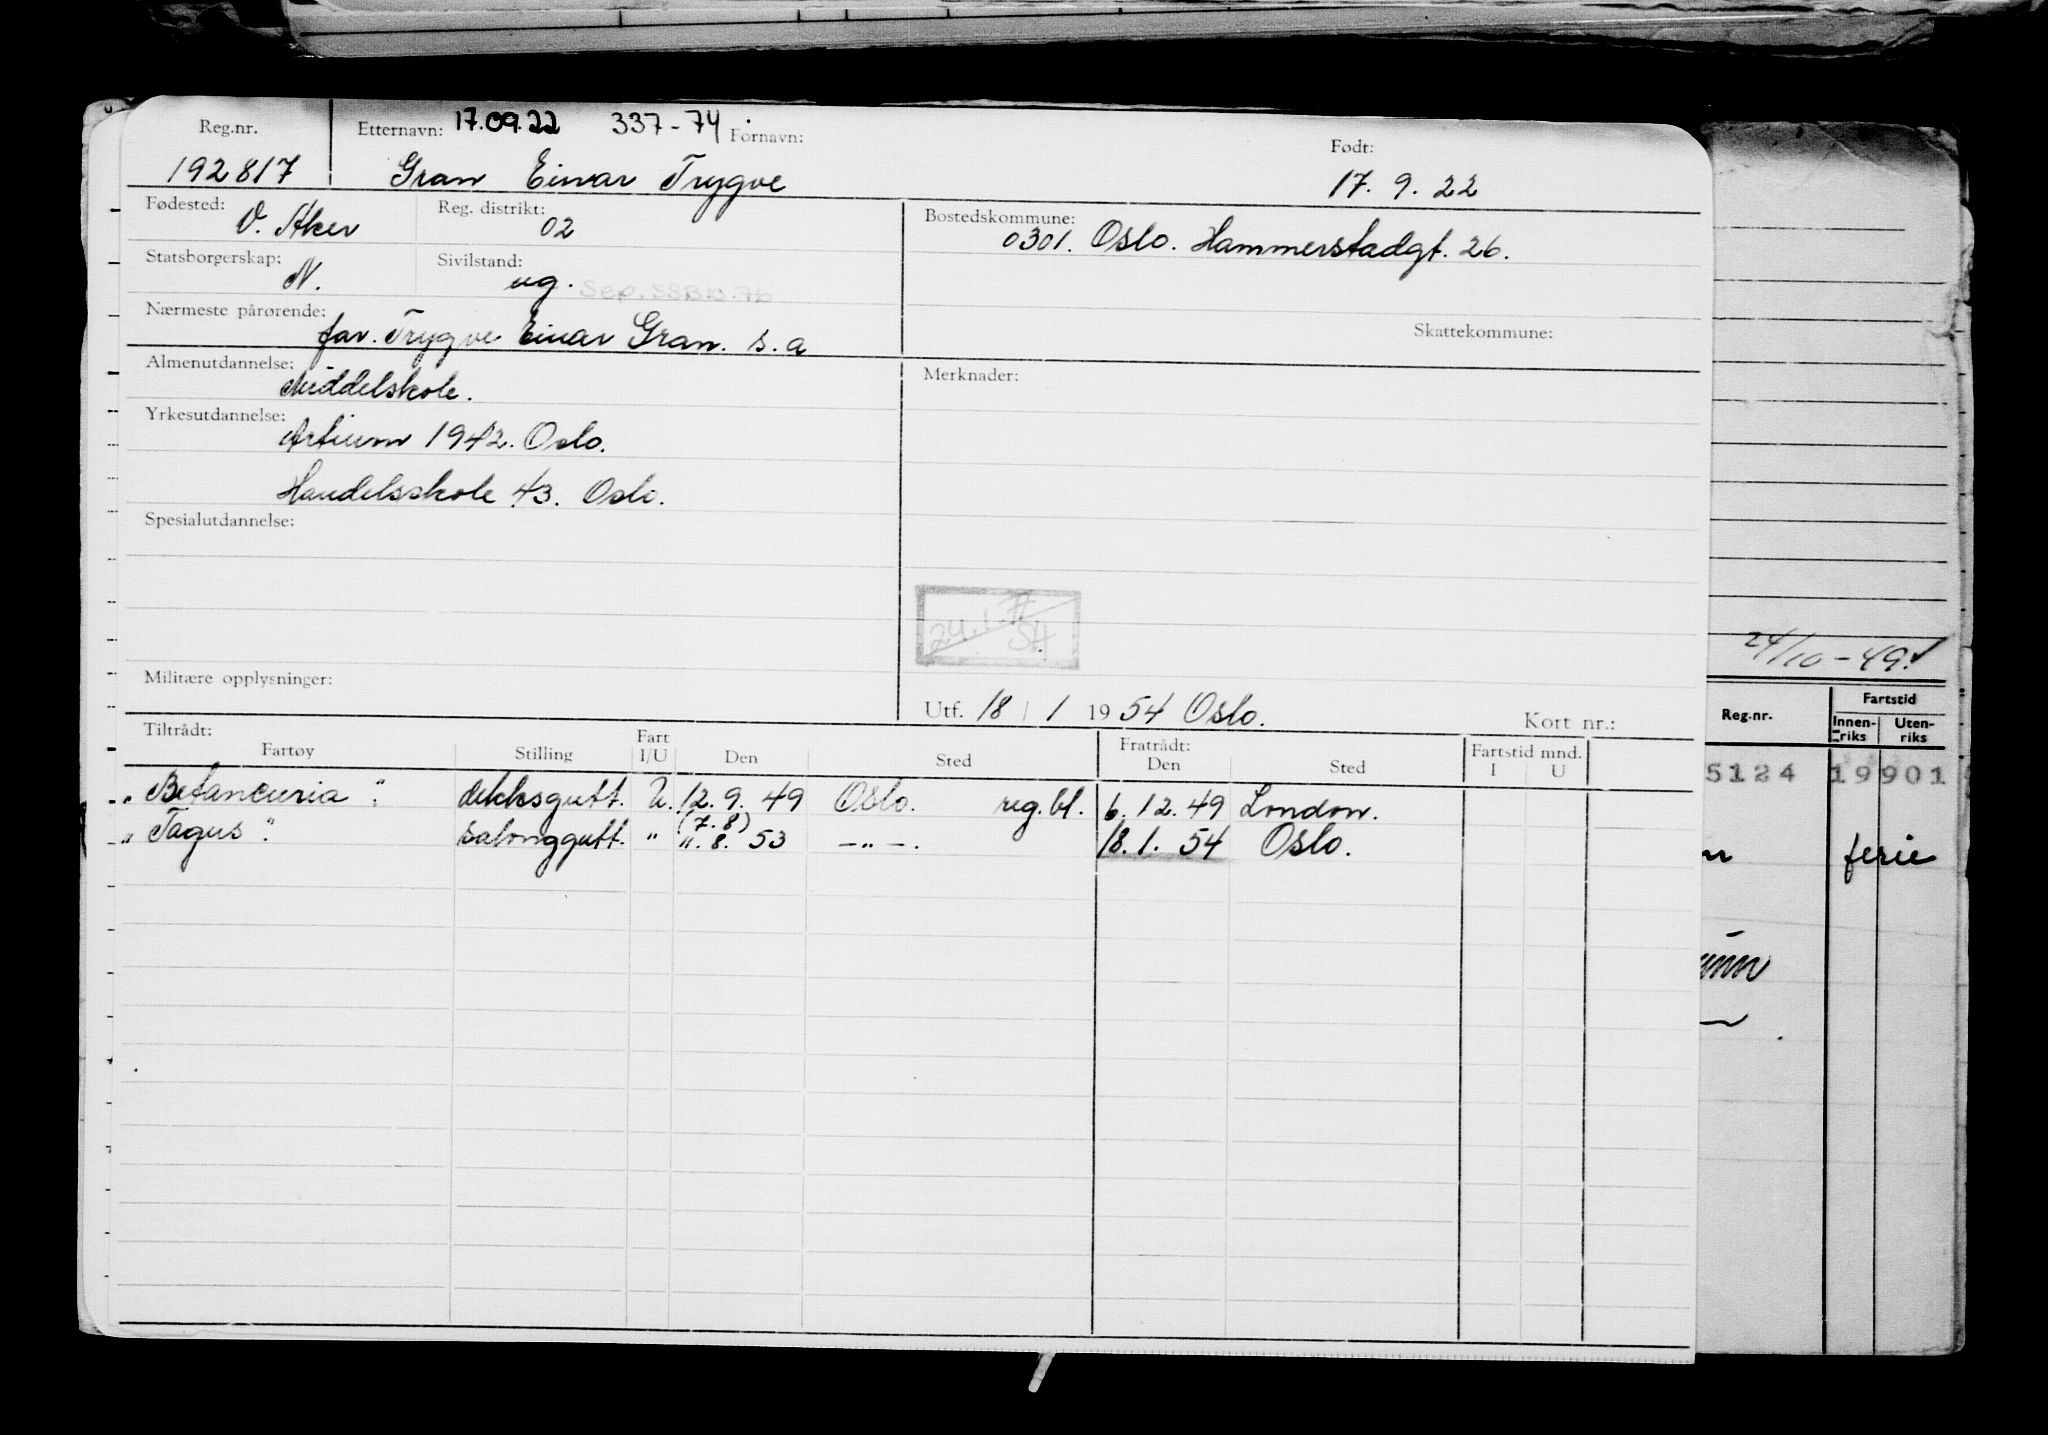 Reg.nr. Etternavn: 17.09.22 337-74 Fornavn: Født:
192817 Gran Einar Trygve 17. 9. 22
Fødested: V. Aker Reg. distrikt: 02 Bostedskommune: 0301. Oslo. Hammerstadgt. 26.
Statsborgerskap: N. Sivilstand: ug.
Nærmeste pårørende: far. Trygve Einar Gran. s.a Skattekommune:
Almenutdannelse: Middelskole. Merknader:
Yrkesutdannelse: Artium 1942. Oslo.
Handelsskole 43. Oslo.
Spesialutdannelse:
Militære opplysninger:
Utf. 18 / 1 1954 Oslo. Kort nr.:
Tiltrådt: Fratrådt:
Fartøy Stilling Fart I/U Den Sted Den Sted Fartstid mnd. I U
"Betancuria". dekksgutt. U. 12. 9. 49 Oslo. reg.bl. 6. 12. 49 London.
(7. 8)
"Tagus". salonggutt. " ". 8. 53 -"-. 18. 1. 54 Oslo.
24/10-49.
Reg.nr. Fartstid
Innen-riks Uten-riks
5124 19901
ferie